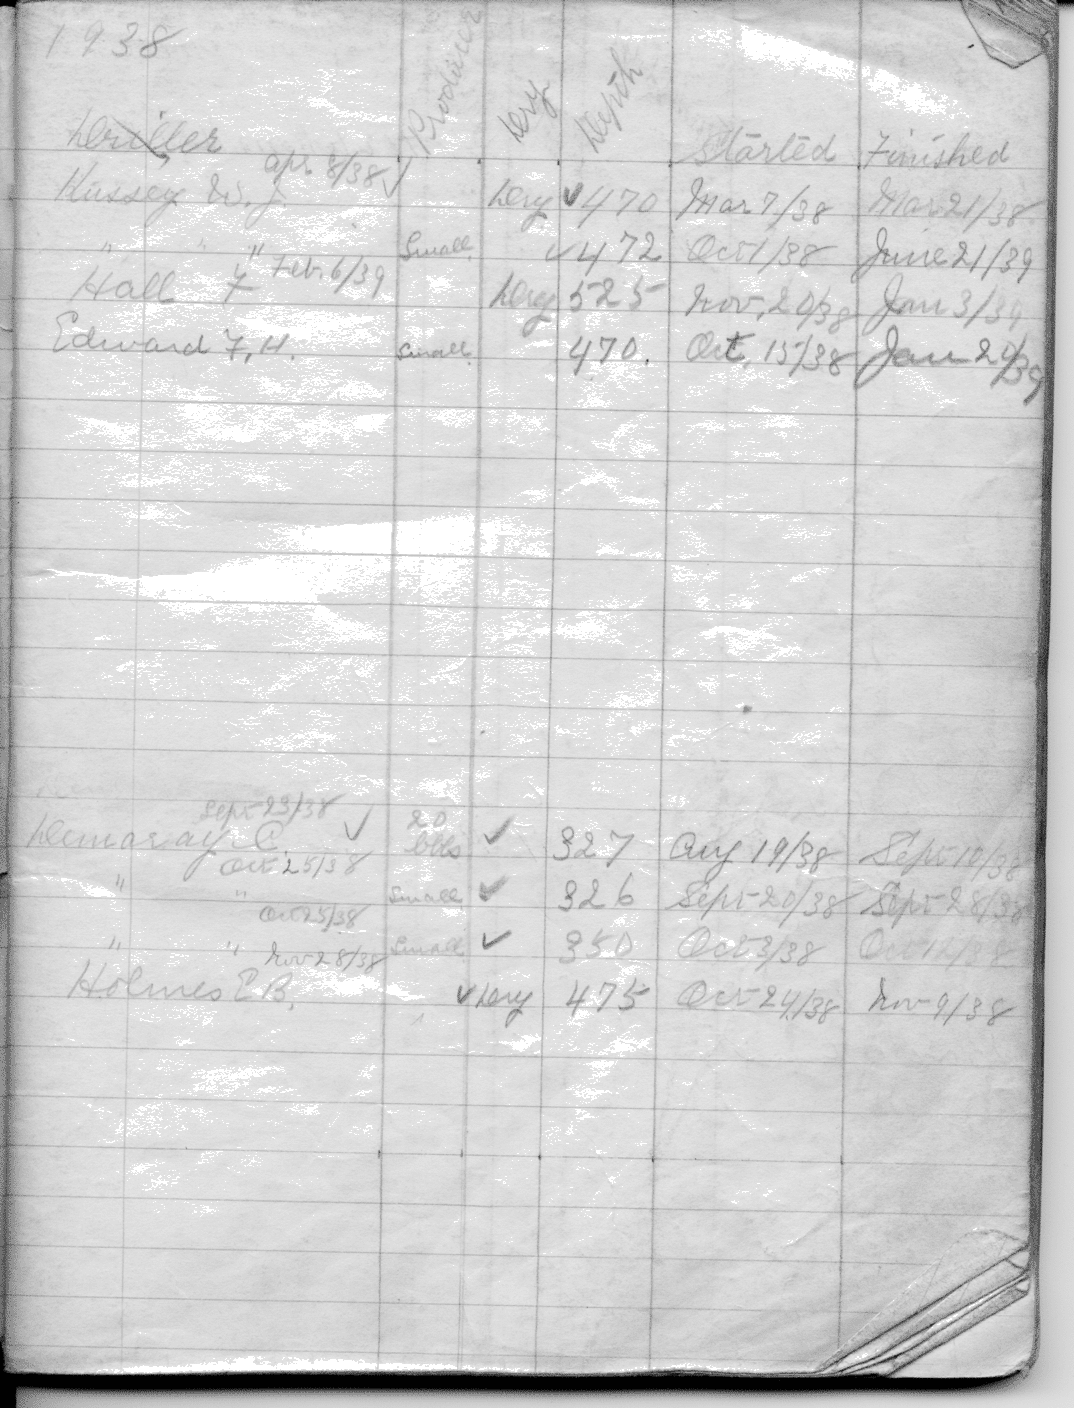 1938
Driller Producer Dry Depth Started Finished
Apr. 8/38 ✓
Hussey W. J. Dry ✓ 470 Mar 7/38 Mar 21/38
" " " Small ✓ 472 Oct 1/38 June 21/39
Feb. 6/39
Hall F Dry 525 Nov. 20/38 Jan 3/39
Edward F. H. Small 470. Oct. 15/38 Jan 20/39
Sept 23/38
Demaray C. ✓ 20 bbls ✓ 327 Aug 19/38 Sept 10/38
Oct 25/38
" " Small ✓ 326 Sept 20/38 Sept 28/38
Oct 25/38
" " Small ✓ 350 Oct 3/38 Oct 12/38
Nov 28/38
Holmes E B. ✓ Dry 475 Oct 24/38 Nov 9/38